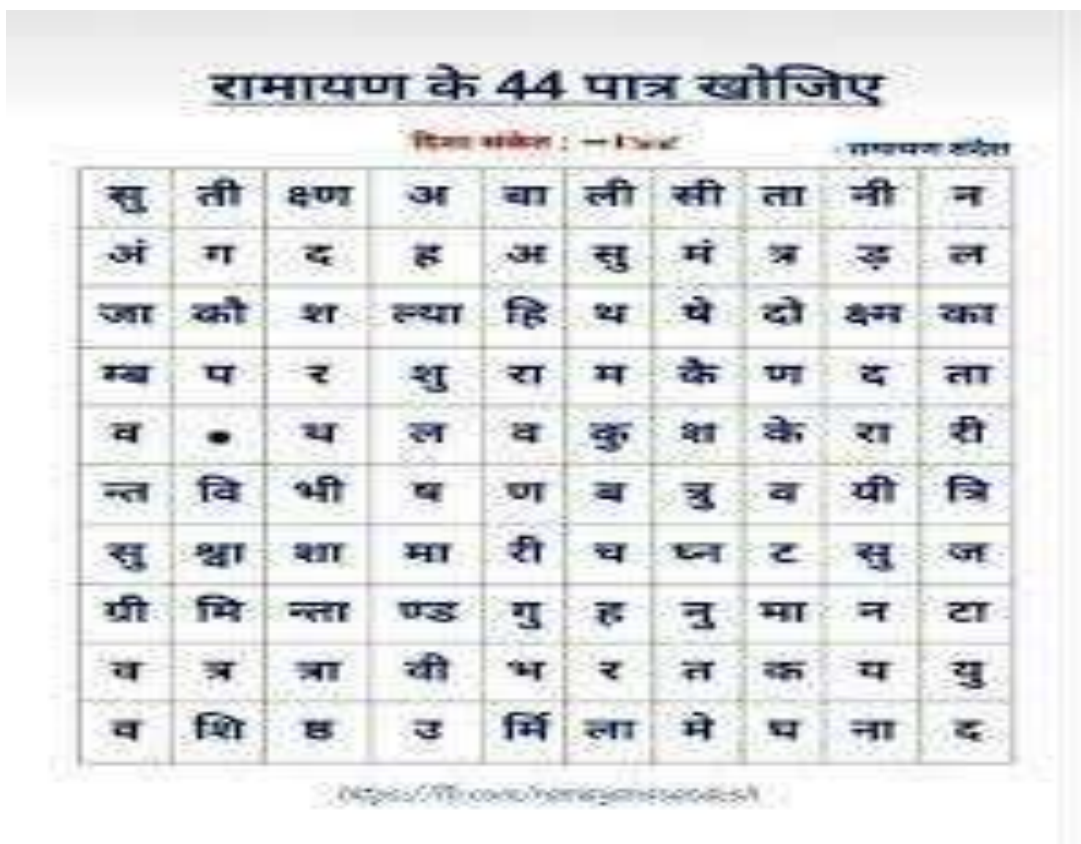 रामायण के 44 पात्र खोजिए
दिशा संकेत :
- रामायण संदेश
सु ती क्ष्ण अ बा ली सी ता नी न
अं ग द ह अ सु मं त्र ड़ ल
जा कौ श ल्या हि थ षे दो क्ष्म का
म्ब प र शु रा म कै ण द ता
व • थ ल व कु श के रा री
न्त वि भी ष ण ब त्रु व यी त्रि
सु श्वा शा मा री च घ्न ट सु ज
ग्री मि न्ता ण्ड गु ह नु मा न टा
व त्र त्रा वी भ र त क प यु
व शि ष्ठ उ र्मि ला मे घ ना द